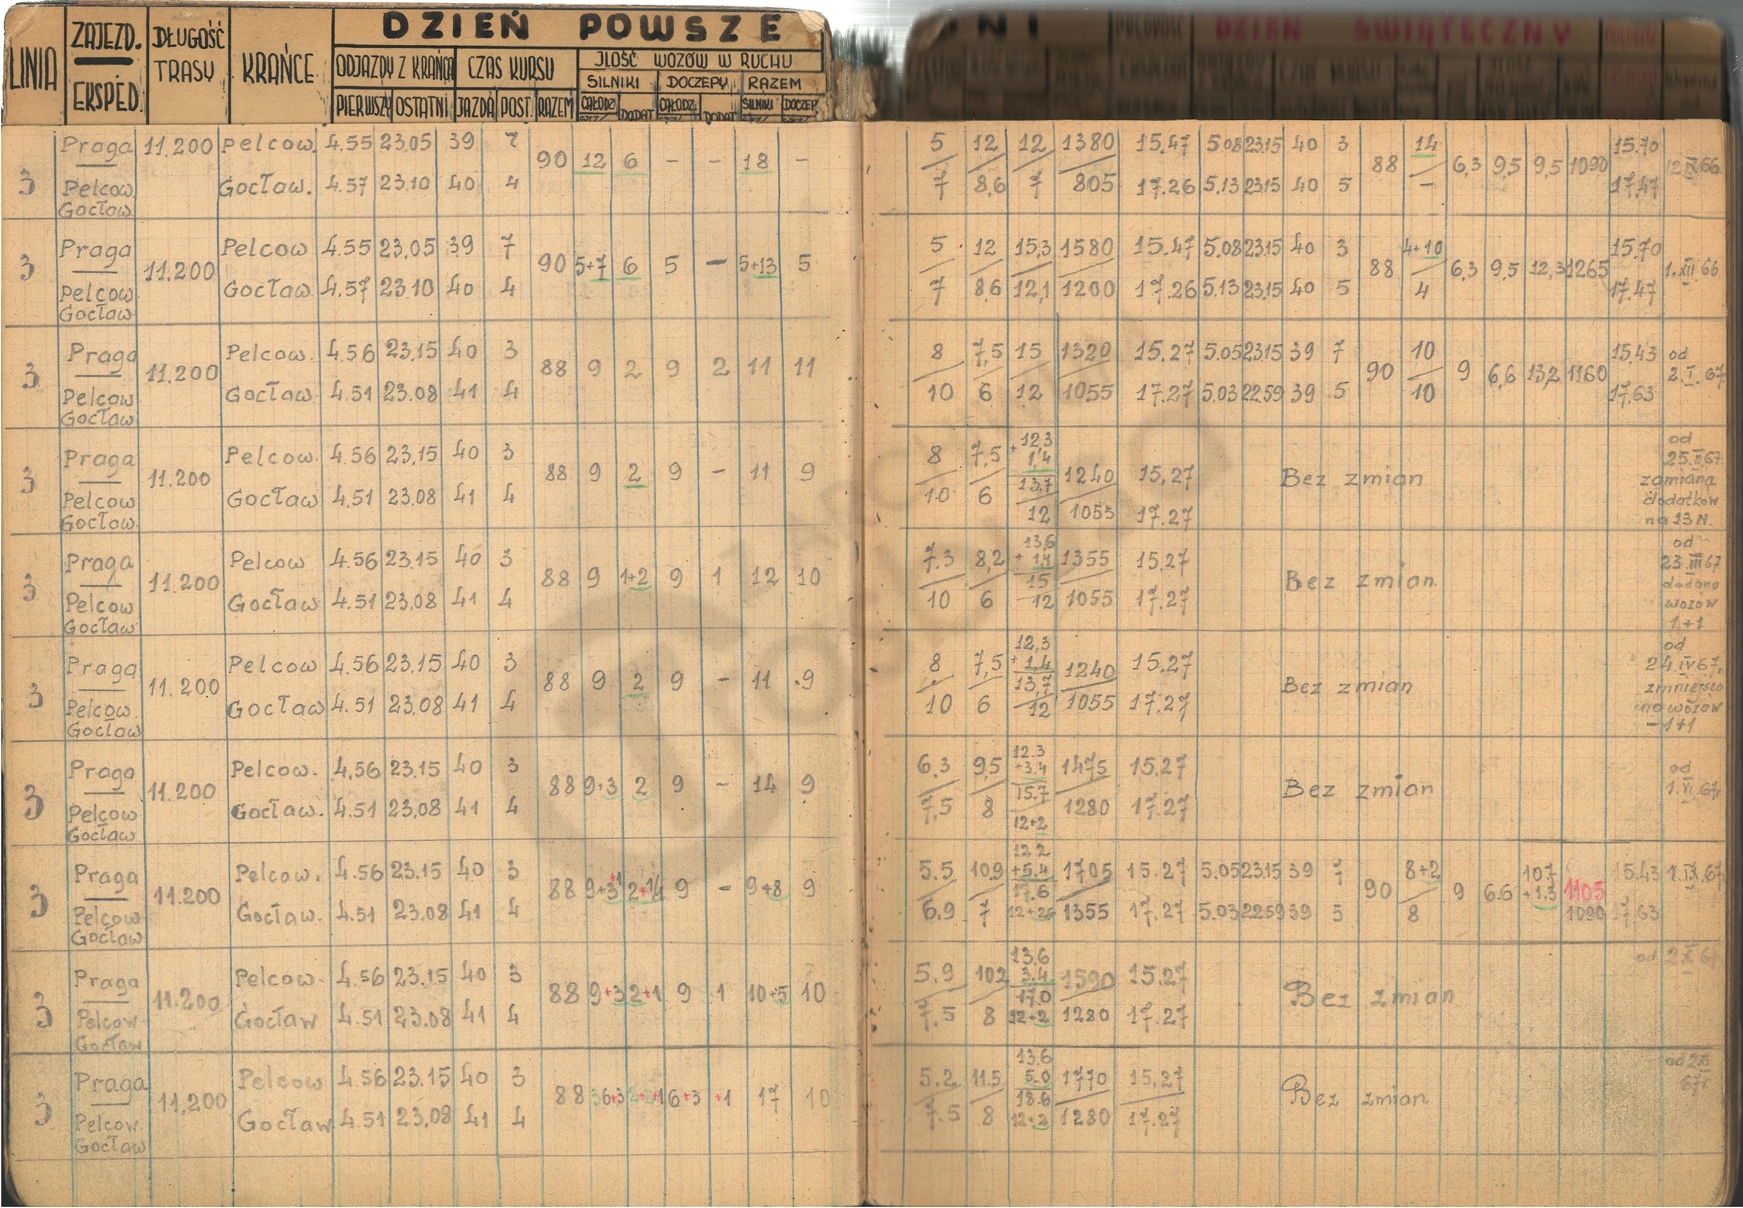 DZIEŃ POWSZE DNI DZIEŃ ŚWIĄTECZNY
LINIA ZAJEZD. EKSPED. DŁUGOŚĆ TRASY KRAŃCE ODJAZDY Z KRAŃCA CZAS KURSU JLOŚĆ WOZÓW W RUCHU
SILNIKI DOCZEPY RAZEM
PIERWSZY OSTATNI JAZDA POST. RAZEM CAŁODZ DODAT CAŁODZ. DODAT SILNIKI DOCZEP.
Praga 11.200 Pelcow. 4.55 23.05 39 7 5 12 12 1380 15.47 5.08 23.15 40 3 14 15.70
3 90 12 6 - - 18 - 88 6,3 9,5 9,5 1090 12.IX.66
Pelcow. Gocław. 4.57 23.10 40 4 7 8,6 7 805 17.26 5.13 23.15 40 5 - 17.47
Gocław
Praga Pelcow 4.55 23.05 39 7 5 12 15,3 1580 15.47 5.08 23.15 40 3 4+10 15.70
3 11.200 90 5+7 6 5 - 5+13 5 88 6,3 9,5 12,3 1265 1.XII.66
Pelcow Gocław 4.57 23.10 40 4 7 8,6 12,1 1200 17.26 5.13 23.15 40 5 4 17.47
Gocław
Praga Pelcow. 4.56 23.15 40 3 8 7,5 15 1320 15.27 5.05 23.15 39 7 10 15.43 od
3 11.200 88 9 2 9 2 11 11 90 9 6,6 13,2 1160 2.I.67
Pelcow Gocław 4.51 23.08 41 4 10 6 12 1055 17.27 5.03 22.59 39 5 10 17.63
Gocław
Praga Pelcow. 4.56 23.15 40 3 8 7,5 12,3 + 1,4 13,7 1240 15,27 od
3 11.200 88 9 2 9 - 11 9 Bez zmian 25.II.67 zamiana dodatków na 13N.
Pelcow Gocław 4.51 23.08 41 4 10 6 12 1055 17.27
Gocław
Praga Pelcow 4.56 23.15 40 3 7.3 8,2 13,6 + 1,4 15 1355 15,27 od
3 11.200 88 9 1+2 9 1 12 10 Bez zmian. 23.III.67 dodano wozów 1+1
Pelcow Gocław 4.51 23,08 41 4 10 6 12 1055 17.27
Gocław
Praga Pelcow 4.56 23.15 40 3 8 7,5 12,3 + 1,4 13,7 1240 15.27 od
3 11.200 88 9 2 9 - 11 9 Bez zmian 24.IV.67,
Pelcow Gocław 4.51 23.08 41 4 10 6 12 1055 17.27 no wozów -1+1
Gocław
Praga Pelcow. 4.56 23.15 40 3 6,3 9,5 12.3 +3.4 15.7 1475 15.27 od
3 11.200 88 9+3 2 9 - 14 9 Bez zmian 1.VI.67,
Pelcow Gocław. 4.51 23,08 41 4 7,5 8 12+2 1280 17.27
Gocław
Praga Pelcow. 4.56 23.15 40 3 5.5 10,9 12.2 +5.4 17.6 1705 15.27 5.05 23.15 39 7 8+2 10,7 +1,3 1105 15.43 1.IX.67
3 11.200 88 9+3+1 2+1 9 - 9+8 9 90 9 6.6
Pelcow Gocław. 4.51 23.08 41 4 6.9 7 1355 17.27 5.03 22.59 39 5 8 1090 17,63
Gocław
Praga Pelcow. 4.56 23.15 40 3 5.9 102 13.6 3.4 17.0 1590 15.27 od 2.X.67
3 11.200 88 9+3 2+1 9 1 10+5 10 Bez zmian
Pelcow Gocław 4.51 23.08 41 4 7.5 8 12+2 1280 17.27
Gocław
Praga Pelcow 4.56 23.15 40 3 5.2 11.5 13.6 5.0 18.6 1770 15.27
3 11,200 88 6+3 +1 17 10 Bez zmian
Pelcow Gocław 4.51 23.08 41 4 7.5 8 12+2 1280 17.27
Gocław